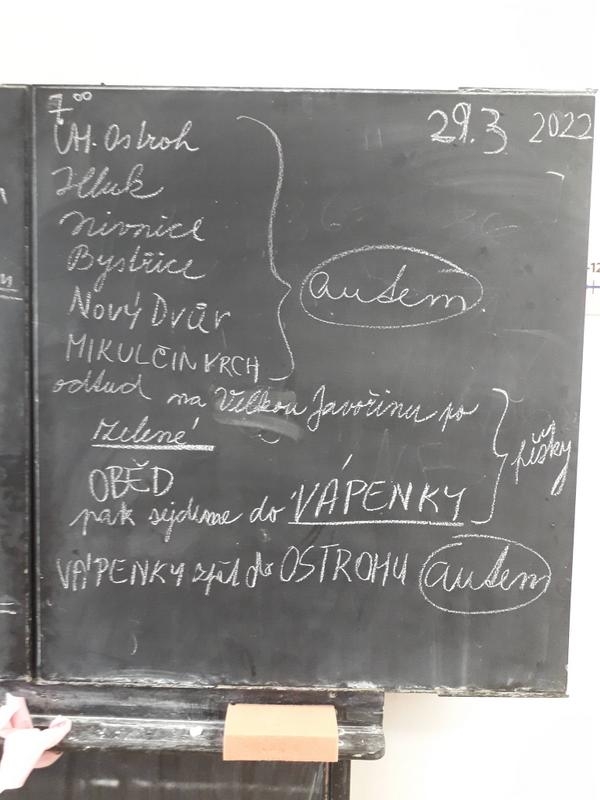 7⁰⁰
29.3 2022
UH. Ostroh
Hluk
Nivnice
Bystřice
autem
Nový Dvůr
MIKULČIN VRCH
odtud na Velkou Javořinu po
zelené
pěšky
OBĚD
pak sejdeme do VÁPENKY
VÁPENKY zpět do OSTROHU autem